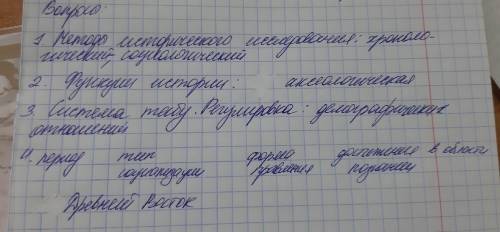 Вопросы:
1. Методы исторического исследования: хроноло-
гический, социологический
2. Функции истории: аксеологическая
3. Система табу. Регулировка: демографических
отношений
4. период тип форма достижения в области
социализации правления познания
Древний Восток